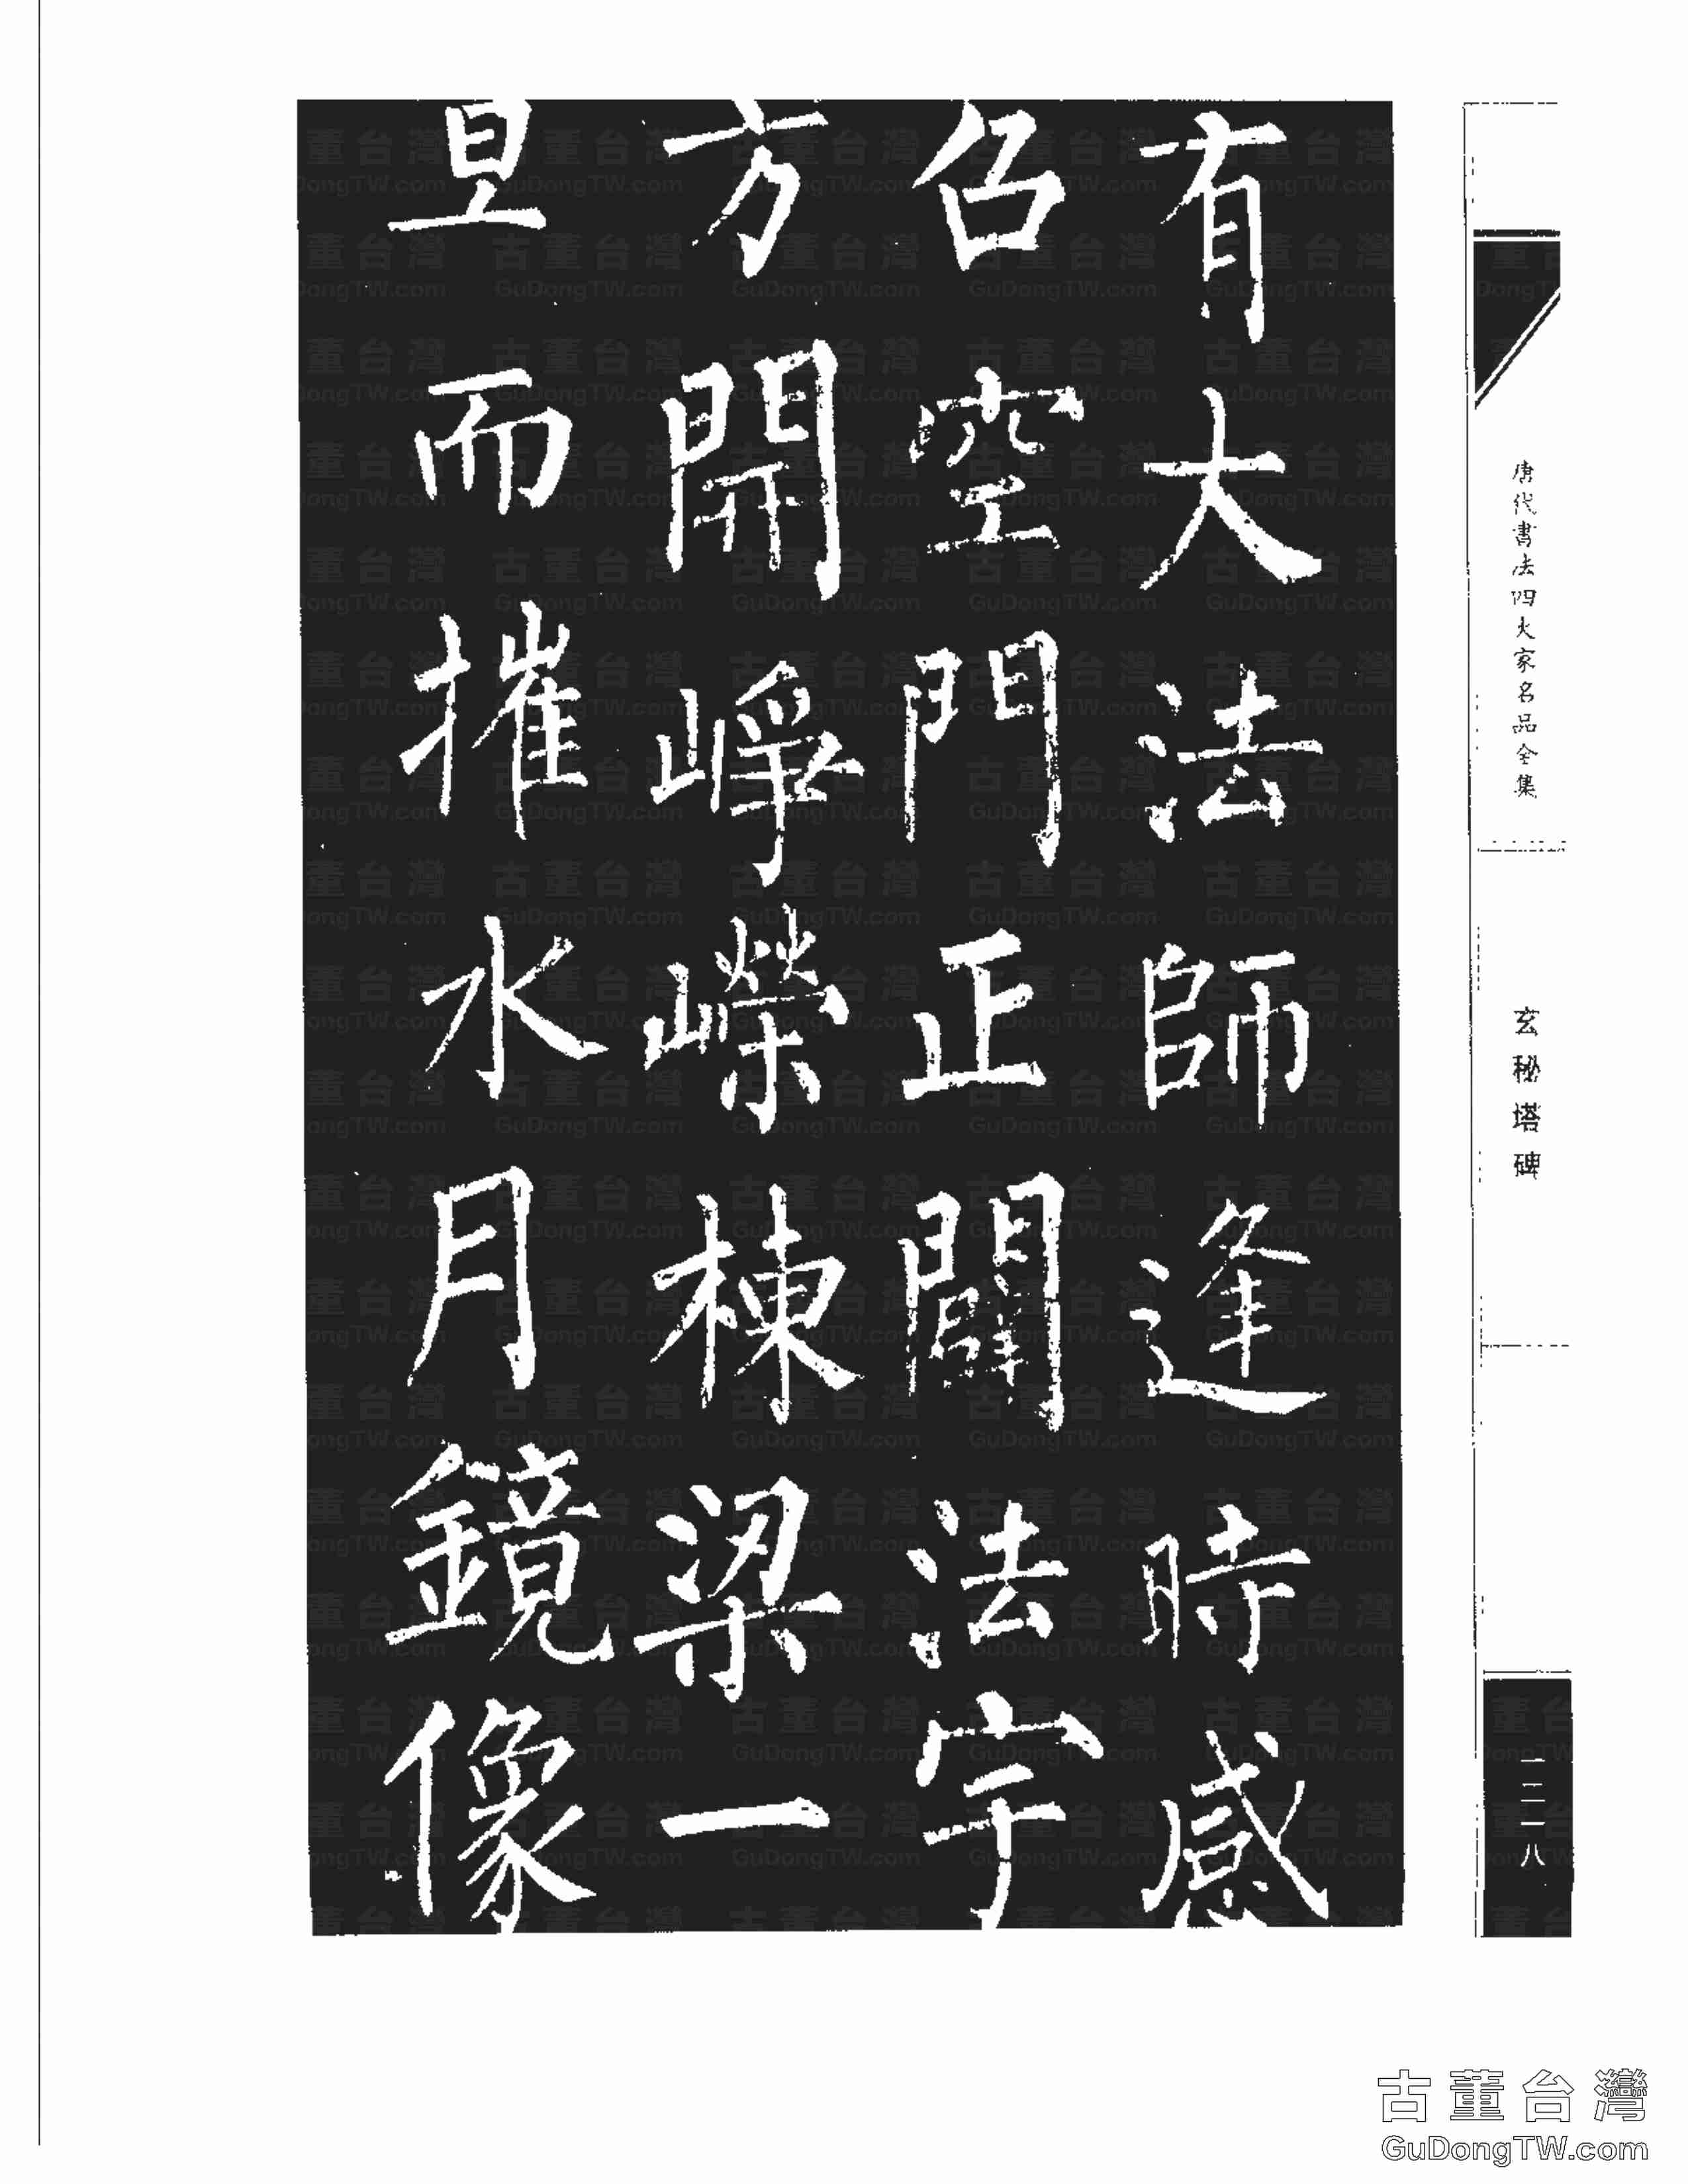 有大法師逢時感
召空門正闢法宇
方開崢嶸棟梁一
旦而摧水月鏡像
唐代書法四大家名品全集
玄秘塔碑
一二一八
古董台灣
GuDongTW.com